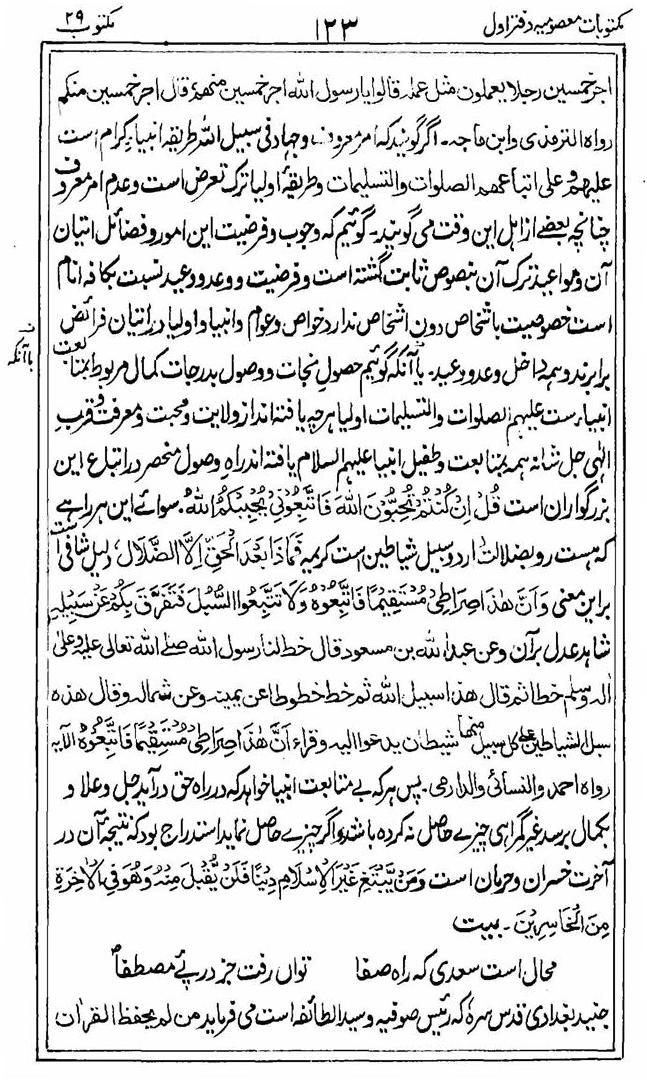 مکتوبات معصومیہ دفتر اول ۱۲۳ مکتوب ۲۹
اجر خمسین رجلا یعملون مثل عملہ قالوا یا رسول اللہ اجر خمسین منھم قال اجر خمسین منکم
رواہ الترمذی وابن ماجہ۔ اگر گویند کہ امر معروف وجہاد فی سبیل اللہ طریقہ انبیاء کرام است
علیہم وعلی اتباعہم الصلوات والتسلیمات وطریقۂ اولیا ترک تعرض است وعدم امر معروف
چنانچہ بعضے از اہل این وقت می گویند۔ گوئیم کہ وجوب وفرضیت این امور وفضائل اتیان
آن ومواعید ترک آن بنصوص ثابت گشتہ است وفرضیت ووعد وعید نسبت بکافہ انام
است خصوصیت باشخاص دون اشخاص ندارد خواص وعوام وانبیا واولیا در اتیان فرائض
برابرند وہمہ داخل وعد وعید۔ یا آنکہ گوئیم حصول نجات ووصول بدرجات کمال مربوط بمتابعت
باآنکہ
انبیاءست علیہم الصلوات والتسلیمات اولیا ہرچہ یافتہ اند از ولایت ومحبت ومعرفت وقرب
الٰہی جل شانہ ہمہ بمتابعت وطفیل انبیا علیہم السلام یافتہ اند راہ وصول منحصر در اتباع این
بزرگواران است قُلْ اِنْ کُنْتُمْ تُحِبُّوْنَ اللّٰهَ فَاتَّبِعُوْنِیْ یُحْبِبْکُمُ اللّٰهُ۔ سوائے این ہر راہے
کہ ہست رو بضلالت دارد وسبیل شیاطین است کریمہ فَمَاذَا بَعْدَ الْحَقِّ اِلَّا الضَّلَالُ، دلیل شافی است
بر این معنی وَاَنَّ هٰذَا صِرَاطِیْ مُسْتَقِیْمًا فَاتَّبِعُوْهُ وَلَا تَتَّبِعُوا السُّبُلَ فَتَفَرَّقَ بِکُمْ عَنْ سَبِیْلِهٖ
شاہد عدل بر آن وعن عبد اللہ بن مسعود قال خط لنا رسول اللہ صلے اللہ تعالی علیہ وعلی
الہ وسلم خطا ثم قال ھذا سبیل اللہ ثم خط خطوطا عن یمینہ وعن شمالہ وقال ھذہ
سبل الشیاطین علی کل سبیل منھا شیطان یدعوا الیہ وقراء اَنَّ هٰذَا صِرَاطِیْ مُسْتَقِیْمًا فَاتَّبِعُوْهُ الآیہ
رواہ احمد والنسائی والدارمی۔ پس ہر کہ بے متابعت انبیا خواہد کہ در راہ حق درآید جل وعلا و
بکمال برسد غیر گمراہی چیزے حاصل نہ کردہ باشد واگر چیزے حاصل نماید استدراج بود کہ نتیجۂ آن در
آخرت خسران وحرمان است وَمَنْ یَّبْتَغِ غَیْرَ الْاِسْلَامِ دِیْنًا فَلَنْ یُّقْبَلَ مِنْهُ وَهُوَ فِی الْاٰخِرَةِ
مِنَ الْخَاسِرِیْنَ۔ بیت
محال است سعدی کہ راہ صفا تواں رفت جز در پئے مصطفاؐ
جنید بغدادی قدس سرہ کہ رئیس صوفیہ وسید الطائفہ است می فرماید من لم یحفظ القراٰن